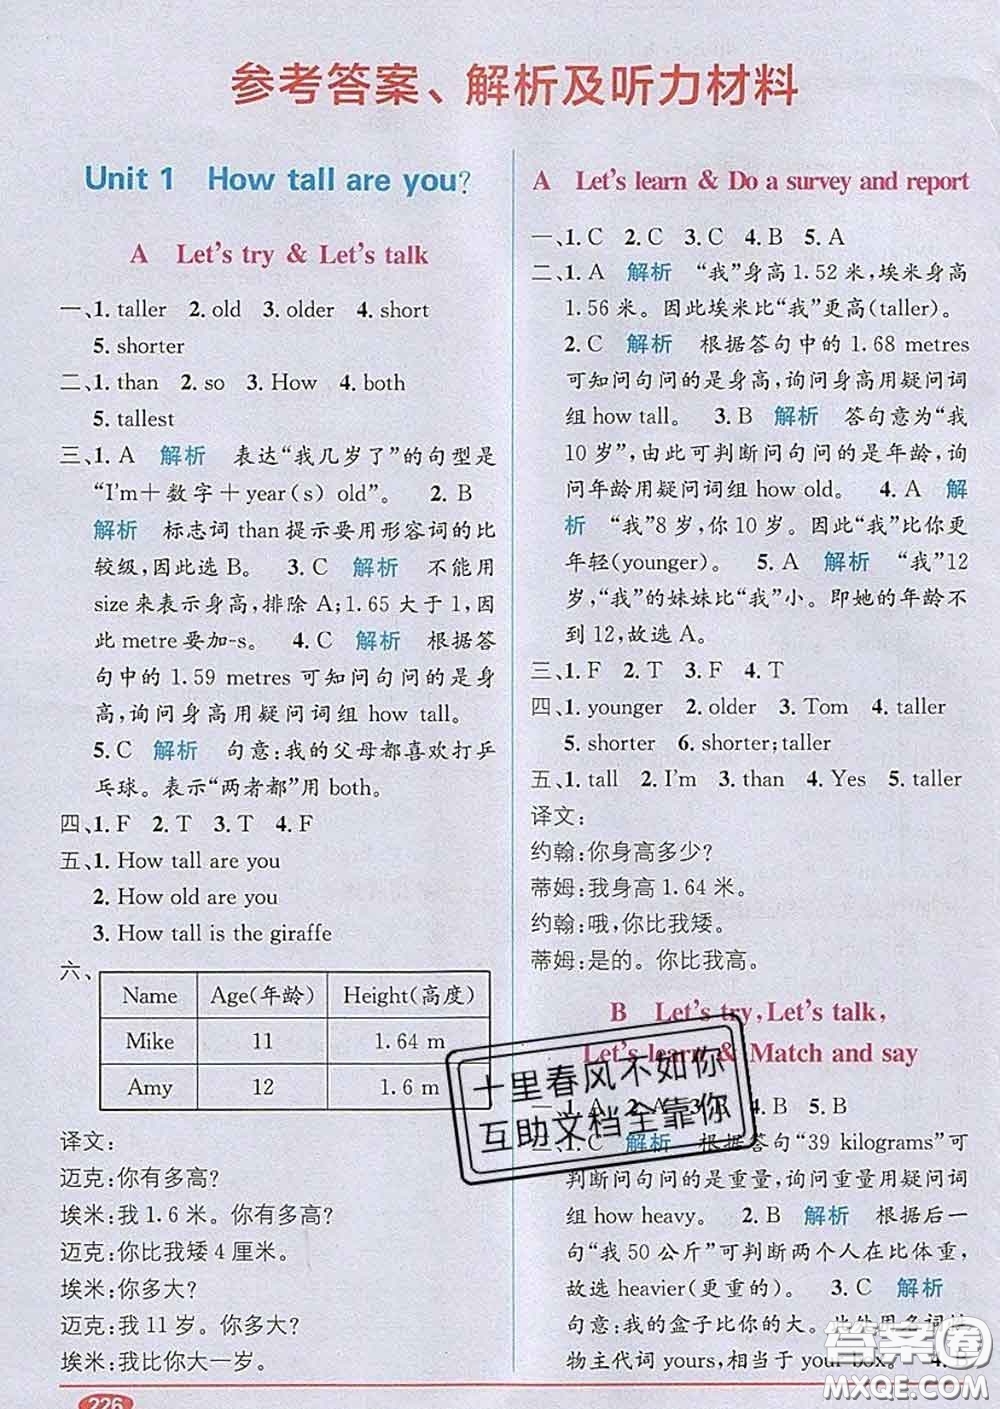 参考答案、解析及听力材料
Unit 1 How tall are you?
A Let's try & Let's talk
一、1. taller 2. old 3. older 4. short
5. shorter
二、1. than 2. so 3. How 4. both
5. tallest
三、1. A 解析 表达“我几岁了”的句型是
“I'm＋数字＋year(s) old”。 2. B
解析 标志词 than 提示要用形容词的比
较级,因此选 B。 3. C 解析 不能用
size 来表示身高,排除 A;1.65 大于 1,因
此 metre 要加-s。 4. C 解析 根据答
句中的 1.59 metres 可知问句问的是身
高,询问身高用疑问词组 how tall。
5. C 解析 句意:我的父母都喜欢打乒
乓球。表示“两者都”用 both。
四、1. F 2. T 3. T 4. F
五、1. How tall are you
2. How old are you
3. How tall is the giraffe
六、
Name Age(年龄) Height(高度)
Mike 11 1.64 m
Amy 12 1.6 m
译文:
迈克:你有多高?
埃米:我 1.6 米。你有多高?
迈克:你比我矮 4 厘米。
埃米:你多大?
迈克:我 11 岁。你多大?
埃米:我比你大一岁。
226
A Let's learn & Do a survey and report
一、1. C 2. C 3. C 4. B 5. A
二、1. A 解析 “我”身高 1.52 米,埃米身高
1.56 米。因此埃米比“我”更高(taller)。
2. C 解析 根据答句中的 1.68 metres
可知问句问的是身高,询问身高用疑问词
组 how tall。 3. B 解析 答句意为“我
10 岁”,由此可判断问句问的是年龄,询
问年龄用疑问词组 how old。 4. A 解
析 “我”8 岁,你 10 岁。因此“我”比你更
年轻(younger)。 5. A 解析 “我”12
岁,“我”的妹妹比“我”小。即她的年龄不
到 12,故选 A。
三、1. F 2. T 3. F 4. T
四、1. younger 2. older 3. Tom 4. taller
5. shorter 6. shorter;taller
五、1. tall 2. I'm 3. than 4. Yes 5. taller
译文:
约翰:你身高多少?
蒂姆:我身高 1.64 米。
约翰:哦,你比我矮。
蒂姆:是的。你比我高。
B Let's try, Let's talk,
Let's learn & Match and say
一、1. A 2. A 3. B 4. B 5. B
二、1. C 解析 根据答句“39 kilograms”可
判断问句问的是重量,询问重量用疑问词
组 how heavy。 2. B 解析 根据后一
句“我 50 公斤”可判断两个人在比体重,
故选 heavier(更重的)。 3. C 解析
句意:我的盒子比你的大。此处用名词性
物主代词 yours,相当于 your box。 4.
十里春风不如你
互助文档全靠你
答案圈
MXQE.COM